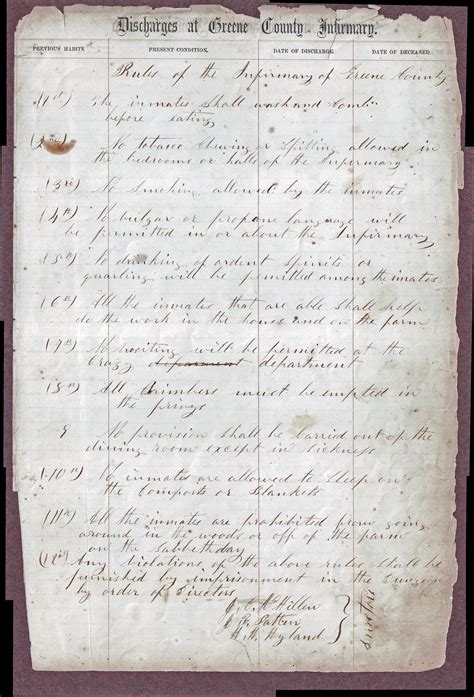 Discharges at Greene County Infirmary.
PREVIOUS HABITS. PRESENT CONDITION. DATE OF DISCHARGE. DATE OF DECEASED.
Rules of the Infirmary of Greene County
(1st) The inmates shall wash and Comb
before eating
No tobacco Chewing or Spitting allowed in
the bedrooms or halls of the Infirmary
(3rd) No Smoking allowed by the inmates
(4th) No bulgar or propane language will
be permitted in or about the Infirmary
(5th) No drinking of ardent Spirits or
quarling will be permitted among the inmates
(6th) All the inmates that are able Shall help
do the work in the house and on the farm
(7th) No visiting will be permitted at the
Crazy department
(8th) All Chimbers must be emptied in
the privys
9 No provision Shall be Carried out of the
dining room except in Sickness
(10th) No inmates are allowed to Sleep on
the Comports or Blankets
(11th) All the inmates are prohibited from going
around in the woods or off of the farm
on the Sabbethday
(12th) Any Violations of the above rules Shall be
punished by imprisonment in the Dungon
by order of Directors
J. C. McMillen
Patten
H. H. Hyland